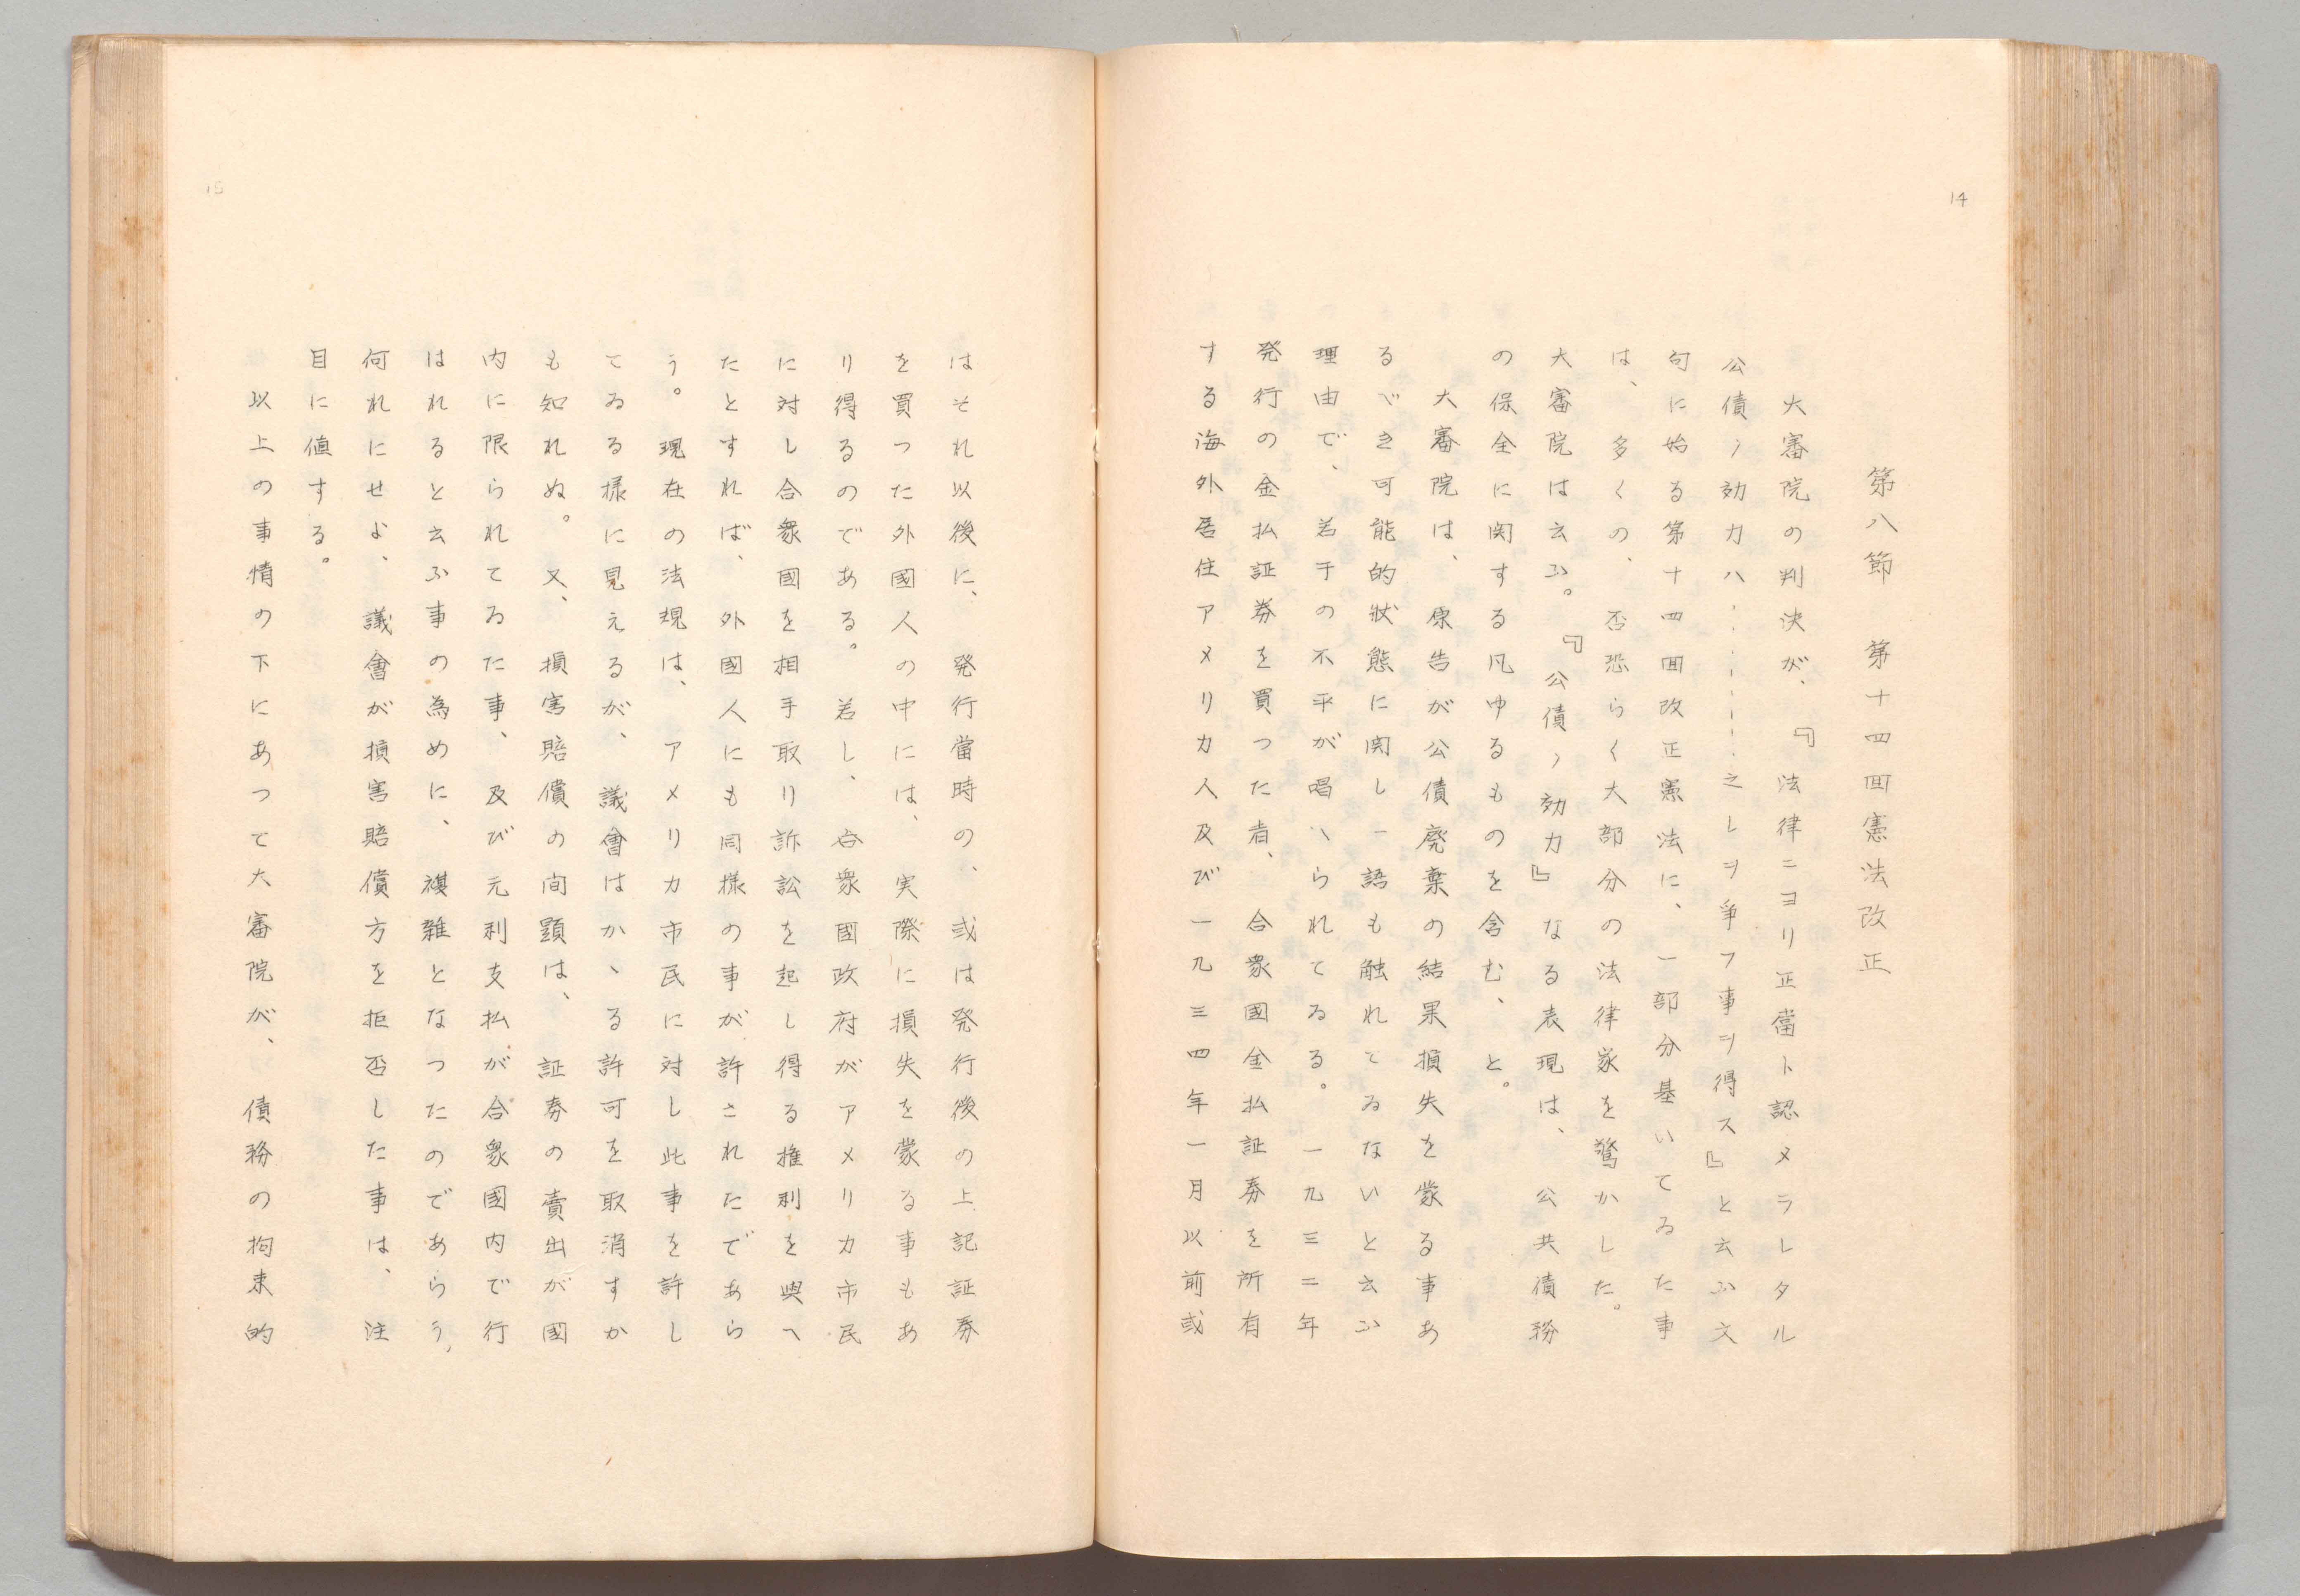 14
第八節　第十四回憲法改正
大審院の判決が、『法律ニヨリ正當ト認メラレタル
公債ノ効力ハ………之レヲ争フ事ヲ得ス』と云ふ文
句に始る第十四回改正憲法に、一部分基いてゐた事
は、多くの、否恐らく大部分の法律家を驚かした。
大審院は云ふ。『公債ノ効力』なる表現は、公共債務
の保全に関する凡ゆるものを含む、と。
大審院は、原告が公債廃棄の結果損失を蒙る事あ
るべき可能的状態に関し一語も触れてゐないと云ふ
理由で、若干の不平が唱へられてゐる。一九三二年
発行の金払証券を買つた者、合衆國金払証券を所有
する海外居住アメリカ人及び一九三四年一月以前或
15
はそれ以後に、発行當時の、或は発行後の上記証券
を買つた外國人の中には、実際に損失を蒙る事もあ
り得るのである。若し、合衆國政府がアメリカ市民
に対し合衆國を相手取り訴訟を起し得る権利を與へ
たとすれば、外國人にも同様の事が許されたであら
う。現在の法規は、アメリカ市民に対し此事を許し
てゐる様に見えるが、議會はかゝる許可を取消すか
も知れぬ。又、損害賠償の問題は、証券の賣出が國
内に限られてゐた事、及び元利支払が合衆國内で行
はれると云ふ事の為めに、複雜となつたのであらう、
何れにせよ、議會が損害賠償方を拒否した事は、注
目に値する。
以上の事情の下にあつて大審院が、債務の拘束的